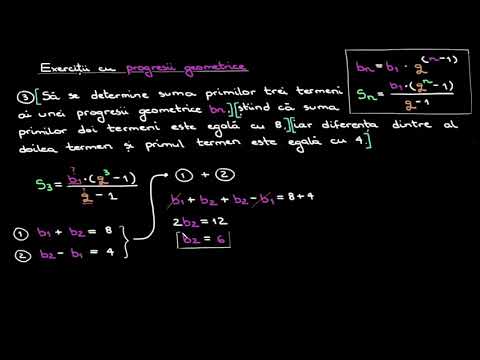 Exerciții cu progresii geometrice
bn = b1 · q^(n-1)
Sn = b1·(q^n - 1) / q - 1
③ [Să se determine suma primilor trei termeni
ai unei progresii geometrice bn.][știind că suma
primilor doi termeni este egală cu 8.][iar diferența dintre al
doilea termen și primul termen este egală cu 4.]
S3 = b1·(q^3 - 1) / q - 1
? ?
① + ②
① b1 + b2 = 8
② b2 - b1 = 4
b1 + b2 + b2 - b1 = 8+4
2b2 = 12
b2 = 6